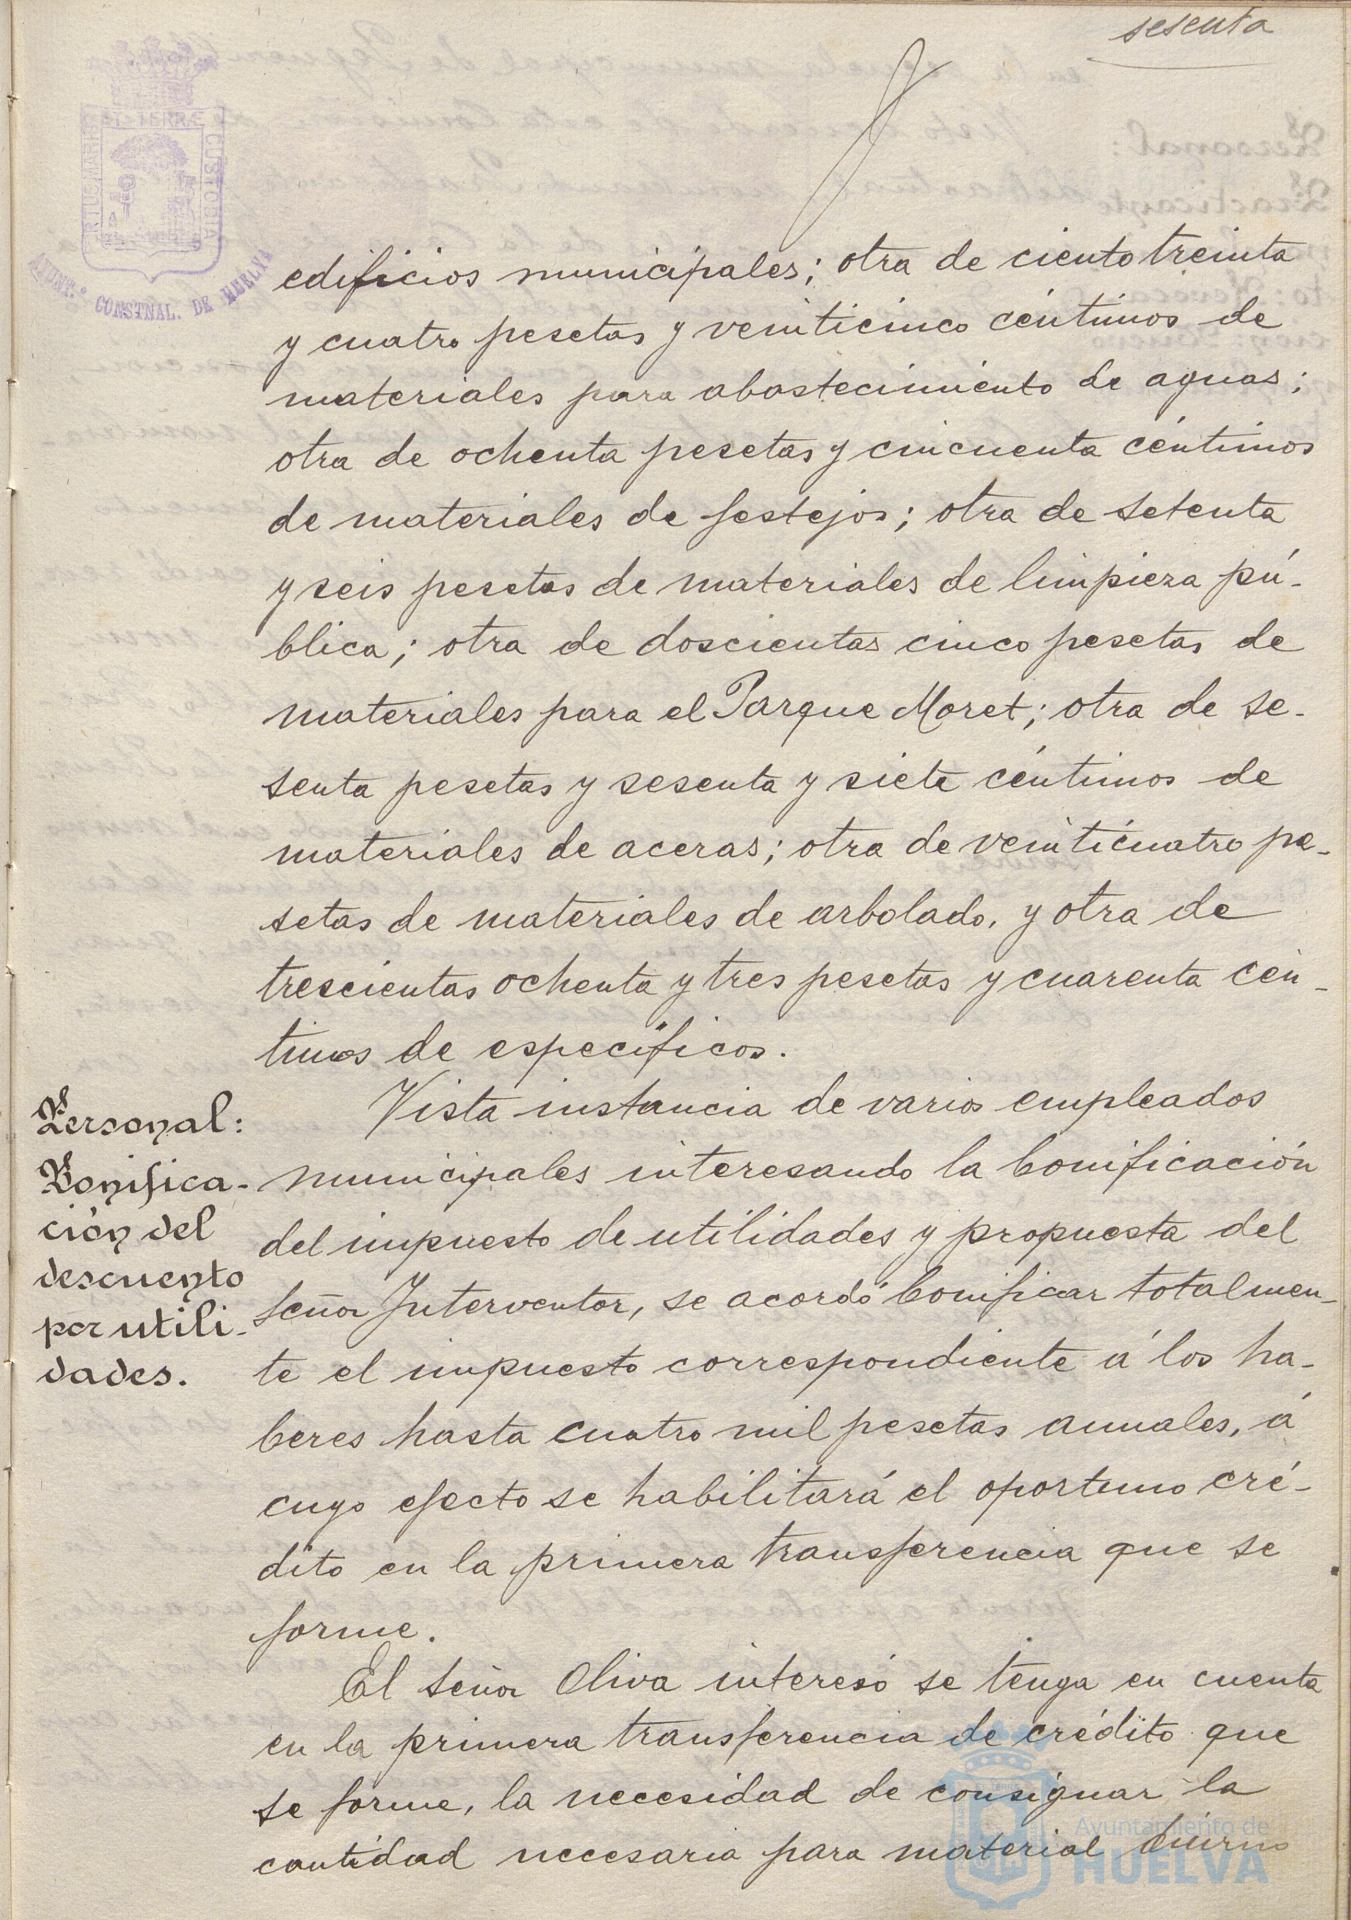 sesenta
PORTUS MARIS ET TERRÆ CUSTODIA
AYUNT.º CONSTNAL. DE HUELVA
edificios municipales; otra de ciento treinta
y cuatro pesetas y veinticinco céntimos de
materiales para abastecimiento de aguas;
otra de ochenta pesetas y cincuenta céntimos
de materiales de festejos; otra de setenta
y seis pesetas de materiales de limpieza pú-
blica; otra de doscientas cinco pesetas de
materiales para el Parque Moret; otra de se-
senta pesetas y sesenta y siete céntimos de
materiales de aceras; otra de veinticuatro pe-
setas de materiales de arbolado, y otra de
trescientas ochenta y tres pesetas y cuarenta cén-
timos de específicos.
Personal:
Bonifica-
ción del
descuento
por utili-
dades.
Vista instancia de varios empleados
municipales interesando la bonificación
del impuesto de utilidades y propuesta del
señor Interventor, se acordó bonificar totalmen-
te el impuesto correspondiente á los ha-
beres hasta cuatro mil pesetas anuales, á
cuyo efecto se habilitará el oportuno cré-
dito en la primera transferencia que se
forme.
El señor Oliva interesó se tenga en cuenta
en la primera transferencia de crédito que
se forme, la necesidad de consignar la
cantidad necesaria para material
Ayuntamiento de
HUELVA